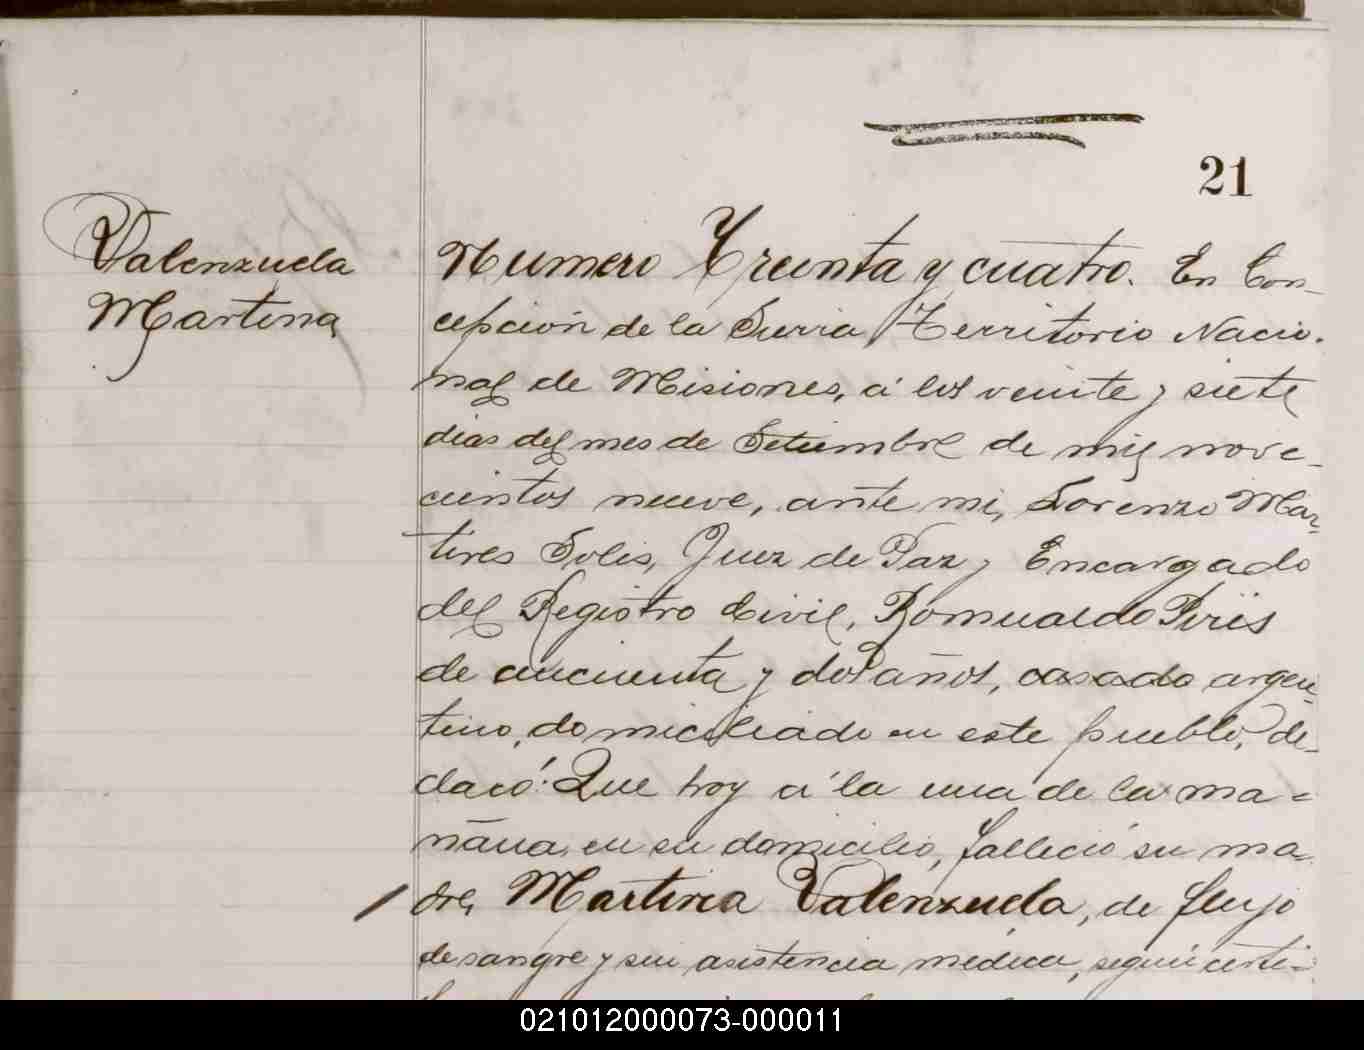 21
Valenzuela
Martina
Numero Treinta y cuatro. En Con-
cepción de la Sierra, Territorio Nacio-
nal de Misiones, á los veinte y siete
dias del mes de Setiembre de mil nove-
cientos nueve, ante mi, Lorenzo Mar-
tires Solis, Juez de Paz y Encargado
del Registro Civil, Romualdo Piris
de cincuenta y dos años, casado argen-
tino, domiciliado en este pueblo, de-
claró: Que hoy á la una de la ma-
ñana, en su domicilio, falleció su ma-
dre, Martina Valenzuela, de flujo
de sangre y sin asistencia médica, según certi-
021012000073-000011